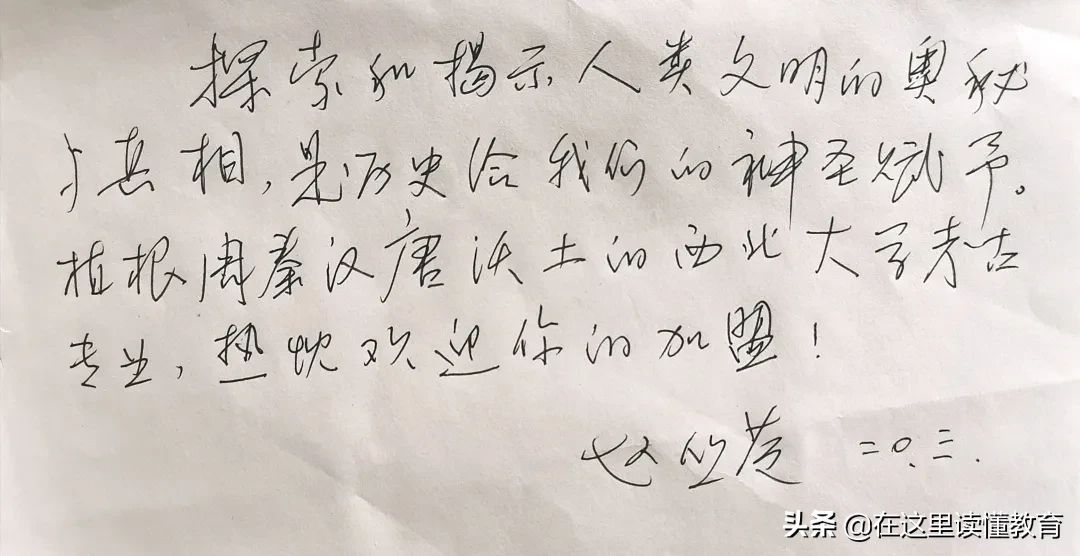 探索和揭示人类文明的奥秘
与真相,是历史给我们的神圣赋予。
植根周秦汉唐沃土的西北大学考古
专业,热忱欢迎你的加盟!
赵丛苍 二0.三.
头条 @在这里读懂教育